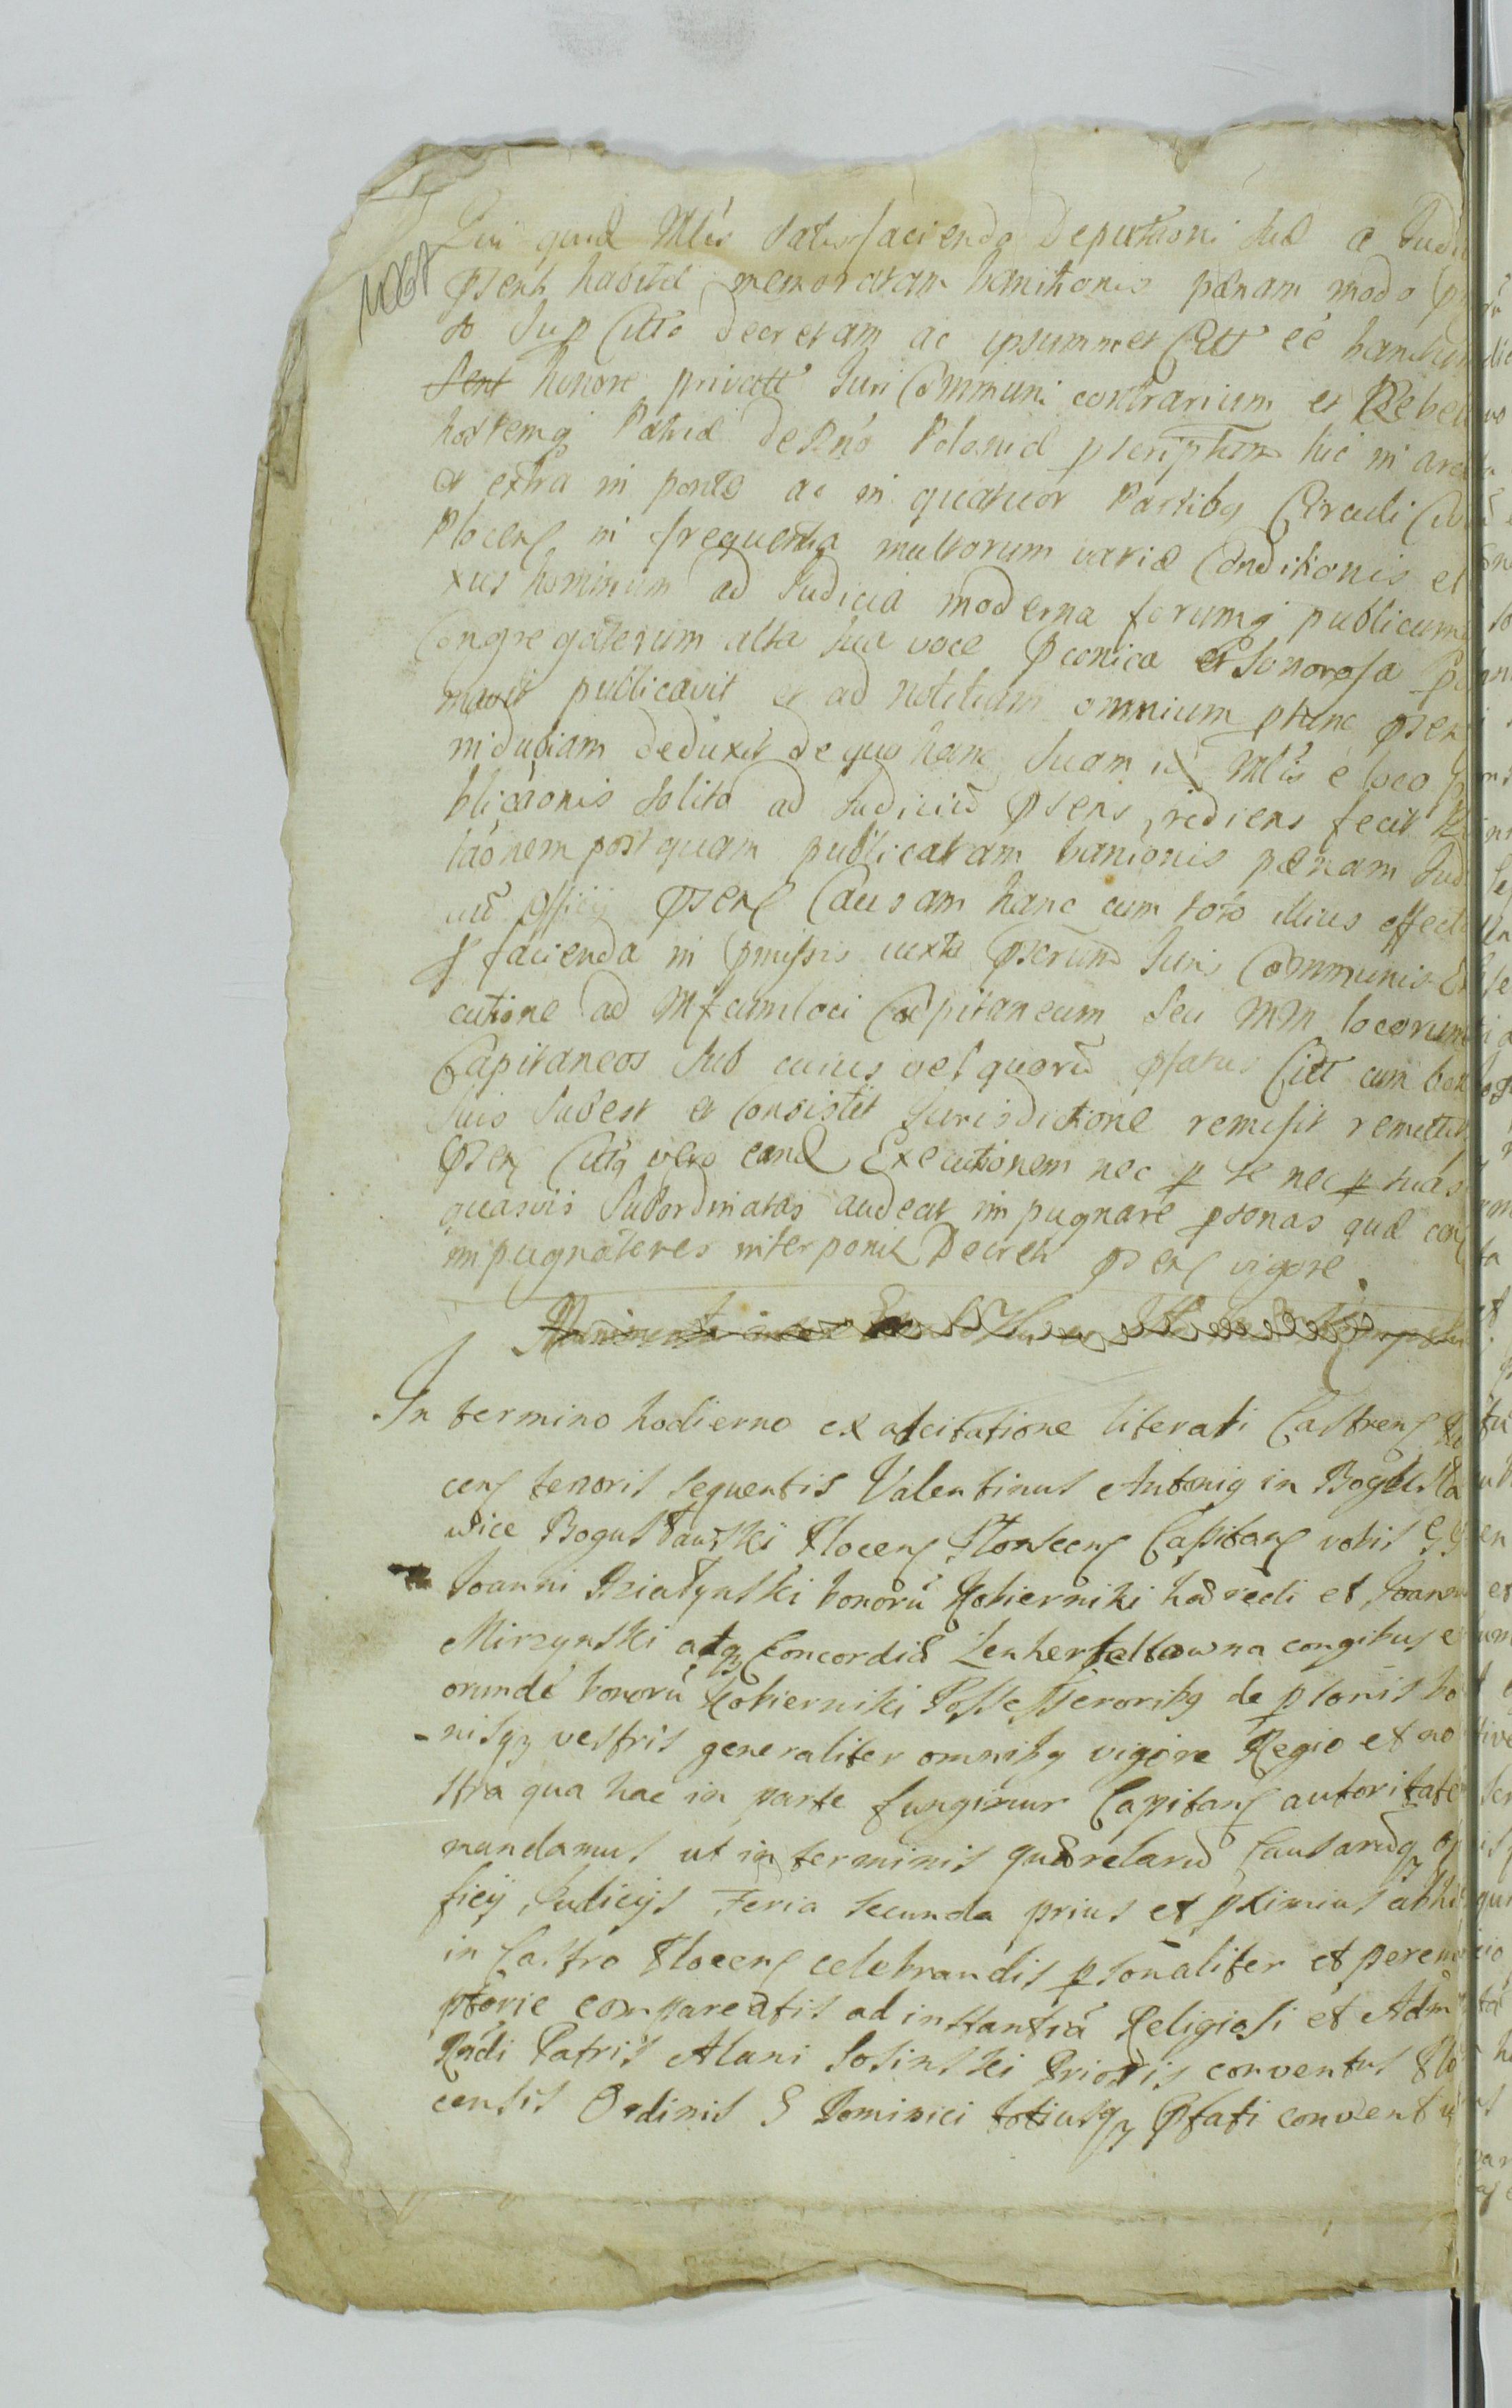 Qui quid Mlis satisfaciendo Deputationi suæ a Judi
psenti habitæ memoratam banitionis pænam modo
to sup Citto decretam ac ipsummet Citt ee banitum
sent honore privatt Juri Communi contrarium et Rebel
hostemq Patriæ de Rno Poloniæ pscriptum hic in arce
et extra in ponte ac in quatuor Partibq Circuli
Plocenſ in frequentia multorum variæ Conditionis et
xus hominum ad Judicia moderna forumq publicum
Congregatorum alta sua voce pconica et sonorosa
mavit publicavit et ad notitiam omnium ptunc psen
indubiam deduxit de quo hanc suam id Mlis e loco
blicaonis solito ad Judiciũ psens rediens fecit
laonem post quam publicatam banionis pænam Jud
uũ Officij psenſ Causam hanc cum toto illius effect
facienda in pmissis iuxta pscrium Juris Communis
cutione ad Mfcum loci Capitaneum seu MM locorum
Capitaneos sub cuius vel quorũ pfatus Citt cum bon
suis subest et consistit Jurisdictione remisit remittit
psenſ Cittq vero eand Executionem nec p se nec p suas
quasvis subordinatas audeat impugnare psonas quæ con
impugnatores interponit Decreti psenſ vigore
In termino hodierno ex adcitatione literali Castrenſ
cenſ tenoris sequentis Valentinus Antonig in Bogusla
wice Bogusławski Plocenſ Płonscenſ Capitanſ vobis GG
Joanni Działynski bonorũ Kobierniki hæredi et Joann
Mirzynski atqz Concordiæ Lenherfeltowna congibus e
orundé bonorũ Kobierniki Possessororibq de psonis bo
-nisqz vestris generaliter omnibq vigore Regio et no
stra qua hac in parte fungimur Capitanſ autoritate
mandamus ut in terminis quærelarũ Causarũq of
ficij Judicijs Feria secunda prius et pximius abhi
in Castro Plocenſ celebrandis psonaliter et perem
ptorie compareatis ad instantiã Religiosi et Adm
Rndi Patris Alani Sosinski Prioris conventus Plo
censis Ordinis S Dominici totiusqz pfati conventus